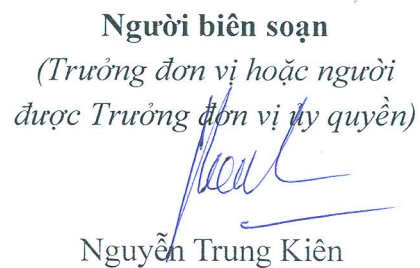 Người biên soạn
(Trưởng đơn vị hoặc người
được Trưởng đơn vị ủy quyền)
Nguyễn Trung Kiên